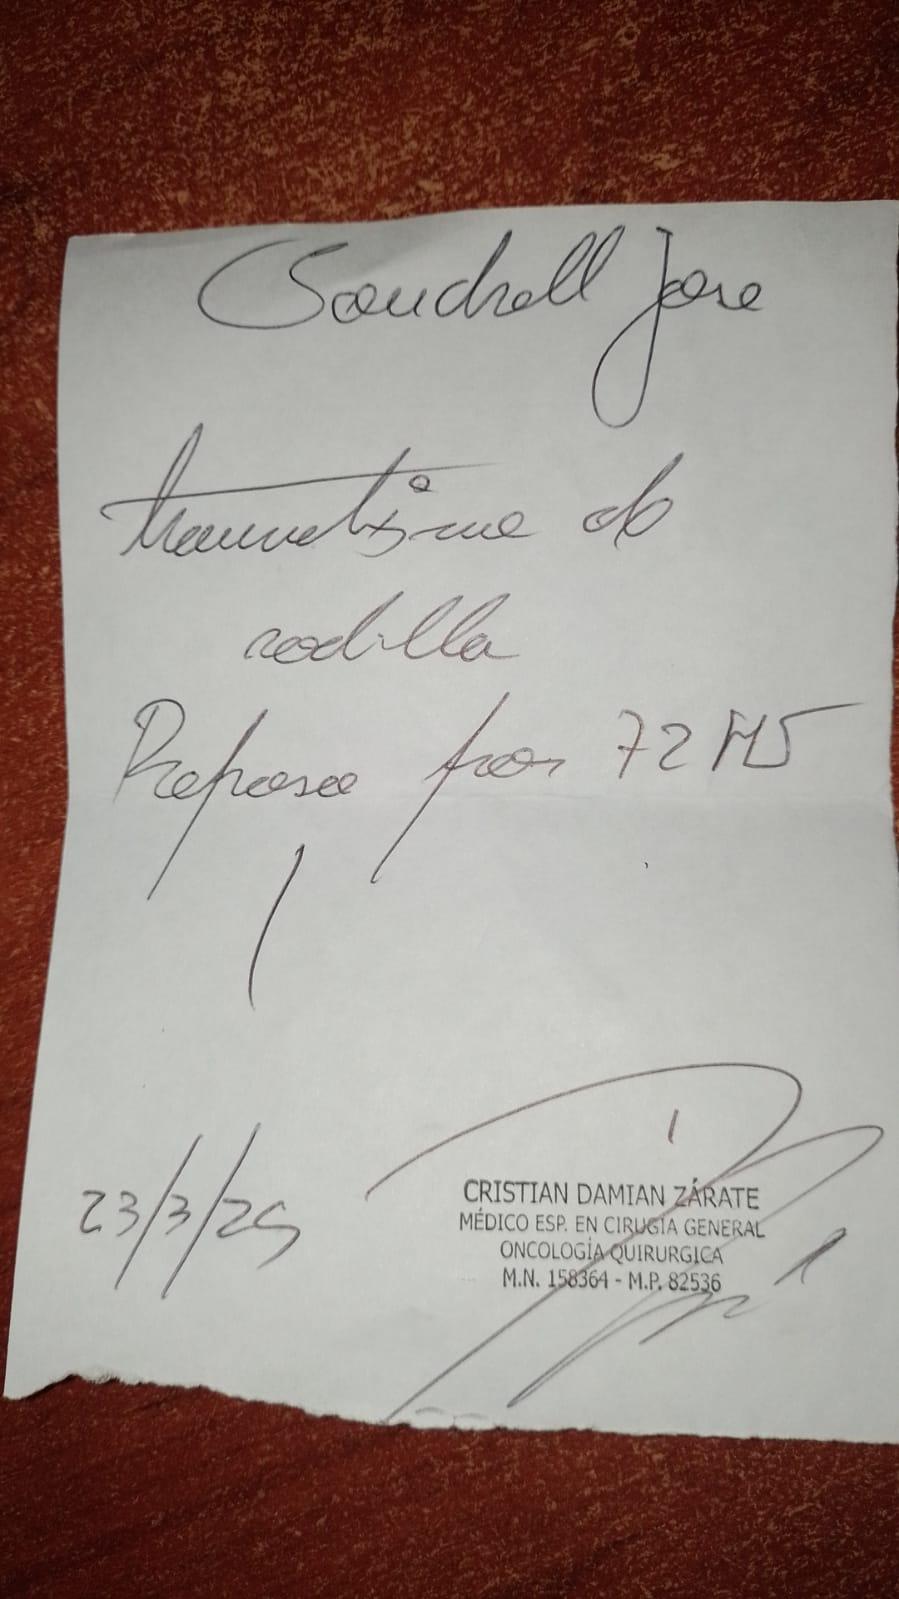 Jose
traumatismo de
rodilla
Reposo por 72 HS
23/3/25
CRISTIAN DAMIAN ZÁRATE
MÉDICO ESP. EN CIRUGÍA GENERAL
ONCOLOGÍA QUIRURGICA
M.N. 158364 - M.P. 82536